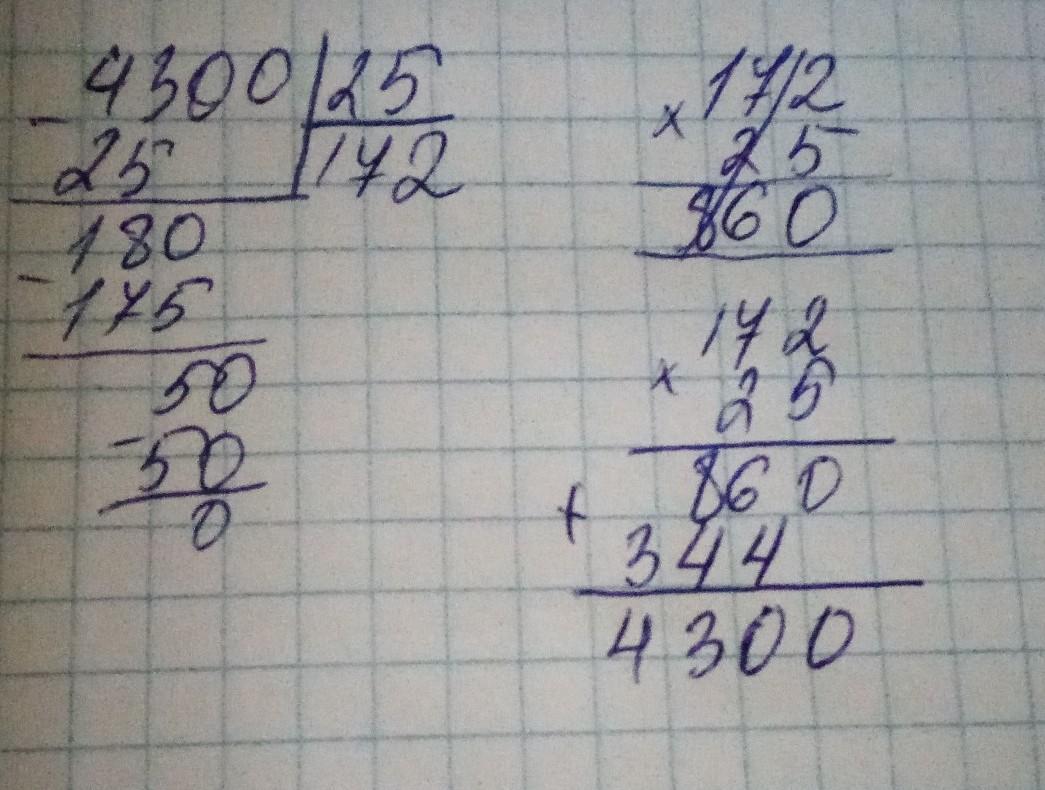 - 4300 | 25
25 | 172
- 180
175
50
- 50
0
× 172
25
860
× 172
25
+ 860
344
4300